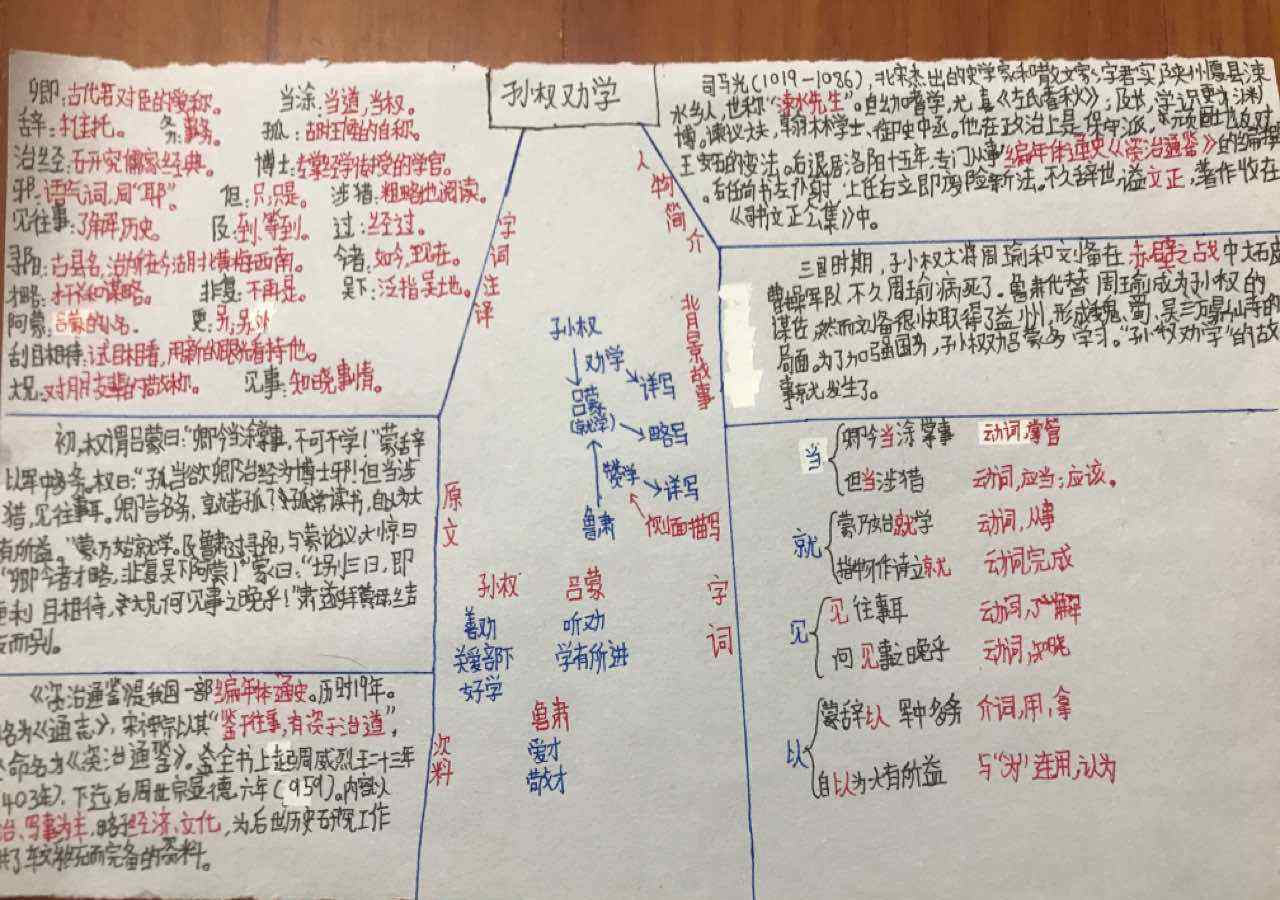 孙权劝学
卿:古代君对臣的爱称。 当涂:当道,当权。
辞:推托。 务:事务。 孤:古时王侯的自称。
治经:研究儒家经典。 博士:专掌经学传授的学官。
邪:语气词,同“耶”。 但:只,只是。 涉猎:粗略地阅读。
见往事:了解历史。 及:到,等到。 过:经过。
寻阳:古县名,治所在今湖北黄梅西南。 今者:如今,现在。
才略:才干和谋略。 非复:不再是。 吴下:泛指吴地。
阿蒙:吕蒙的小名。 更:另,另外
刮目相待:拭目相看,用新的眼光看待他。
大兄:对朋友辈的敬称。 见事:知晓事情。
字词注译
初,权谓吕蒙曰:“卿今当涂掌事,不可不学!”蒙辞
以军中多务。权曰:“孤岂欲卿治经为博士邪!但当涉
猎,见往事耳。卿言多务,孰若孤?孤常读书,自以为大
有所益。”蒙乃始就学。及鲁肃过寻阳,与蒙论议,大惊曰
“卿今者才略,非复吴下阿蒙!”蒙曰:“士别三日,即
更刮目相待,大兄何见事之晚乎!”肃遂拜蒙母,结
友而别。
原文
《资治通鉴》是我国一部编年体通史。历时19年。
名为《通志》,宋神宗以其“鉴于往事,有资于治道”,
命名为《资治通鉴》。全书上起周威烈王二十三年
403年),下迄后周世宗显德六年(959)。内容以
治、军事为主,略于经济、文化,为后世历史研究工作
供了较系统而完备的资料。
资料
人物简介
司马光(1019-1086),北宋杰出的史学家和散文家,字君实,陕州夏县涑
水乡人,也称“涑水先生”。自幼嗜学,尤喜《左氏春秋》;及长,学识更为渊
博。谏议大夫,翰林学士,御史中丞。他在政治上是保守派,反对
王安石的变法。后退居洛阳十五年,专门从事编年体通史《资治通鉴》的编撰
。右任尚书左仆射,上任后立即废除新法。不久辞世,谥文正,著作收在
《司书文正公集》中。
背景故事
三国时期,孙权大将周瑜和刘备在赤壁之战中大破
曹操军队,不久周瑜病死了。鲁肃代替周瑜成为孙权的
谋佐,然而刘备很快取得了益州,形成魏、蜀、吴三方鼎峙的
局面。为了加强国务,孙权劝吕蒙多学习。“孙权劝学”的故
事就发生了。
孙权
劝学 详写
吕蒙
(就学) 略写
赞学 详写
鲁肃 侧面描写
孙权 吕蒙
善劝 听劝
关爱部下 学有所进
好学
鲁肃
爱才
敬才
字词
当
卿今当涂掌事 动词,掌管
但当涉猎 动词,应当;应该。
就
蒙乃始就学 动词,从事
指物作诗立就 动词完成
见
见往事耳 动词,了解
何见事之晚乎 动词,知晓
以
蒙辞以军中多务 介词,用,拿
自以为大有所益 与“为”连用,认为